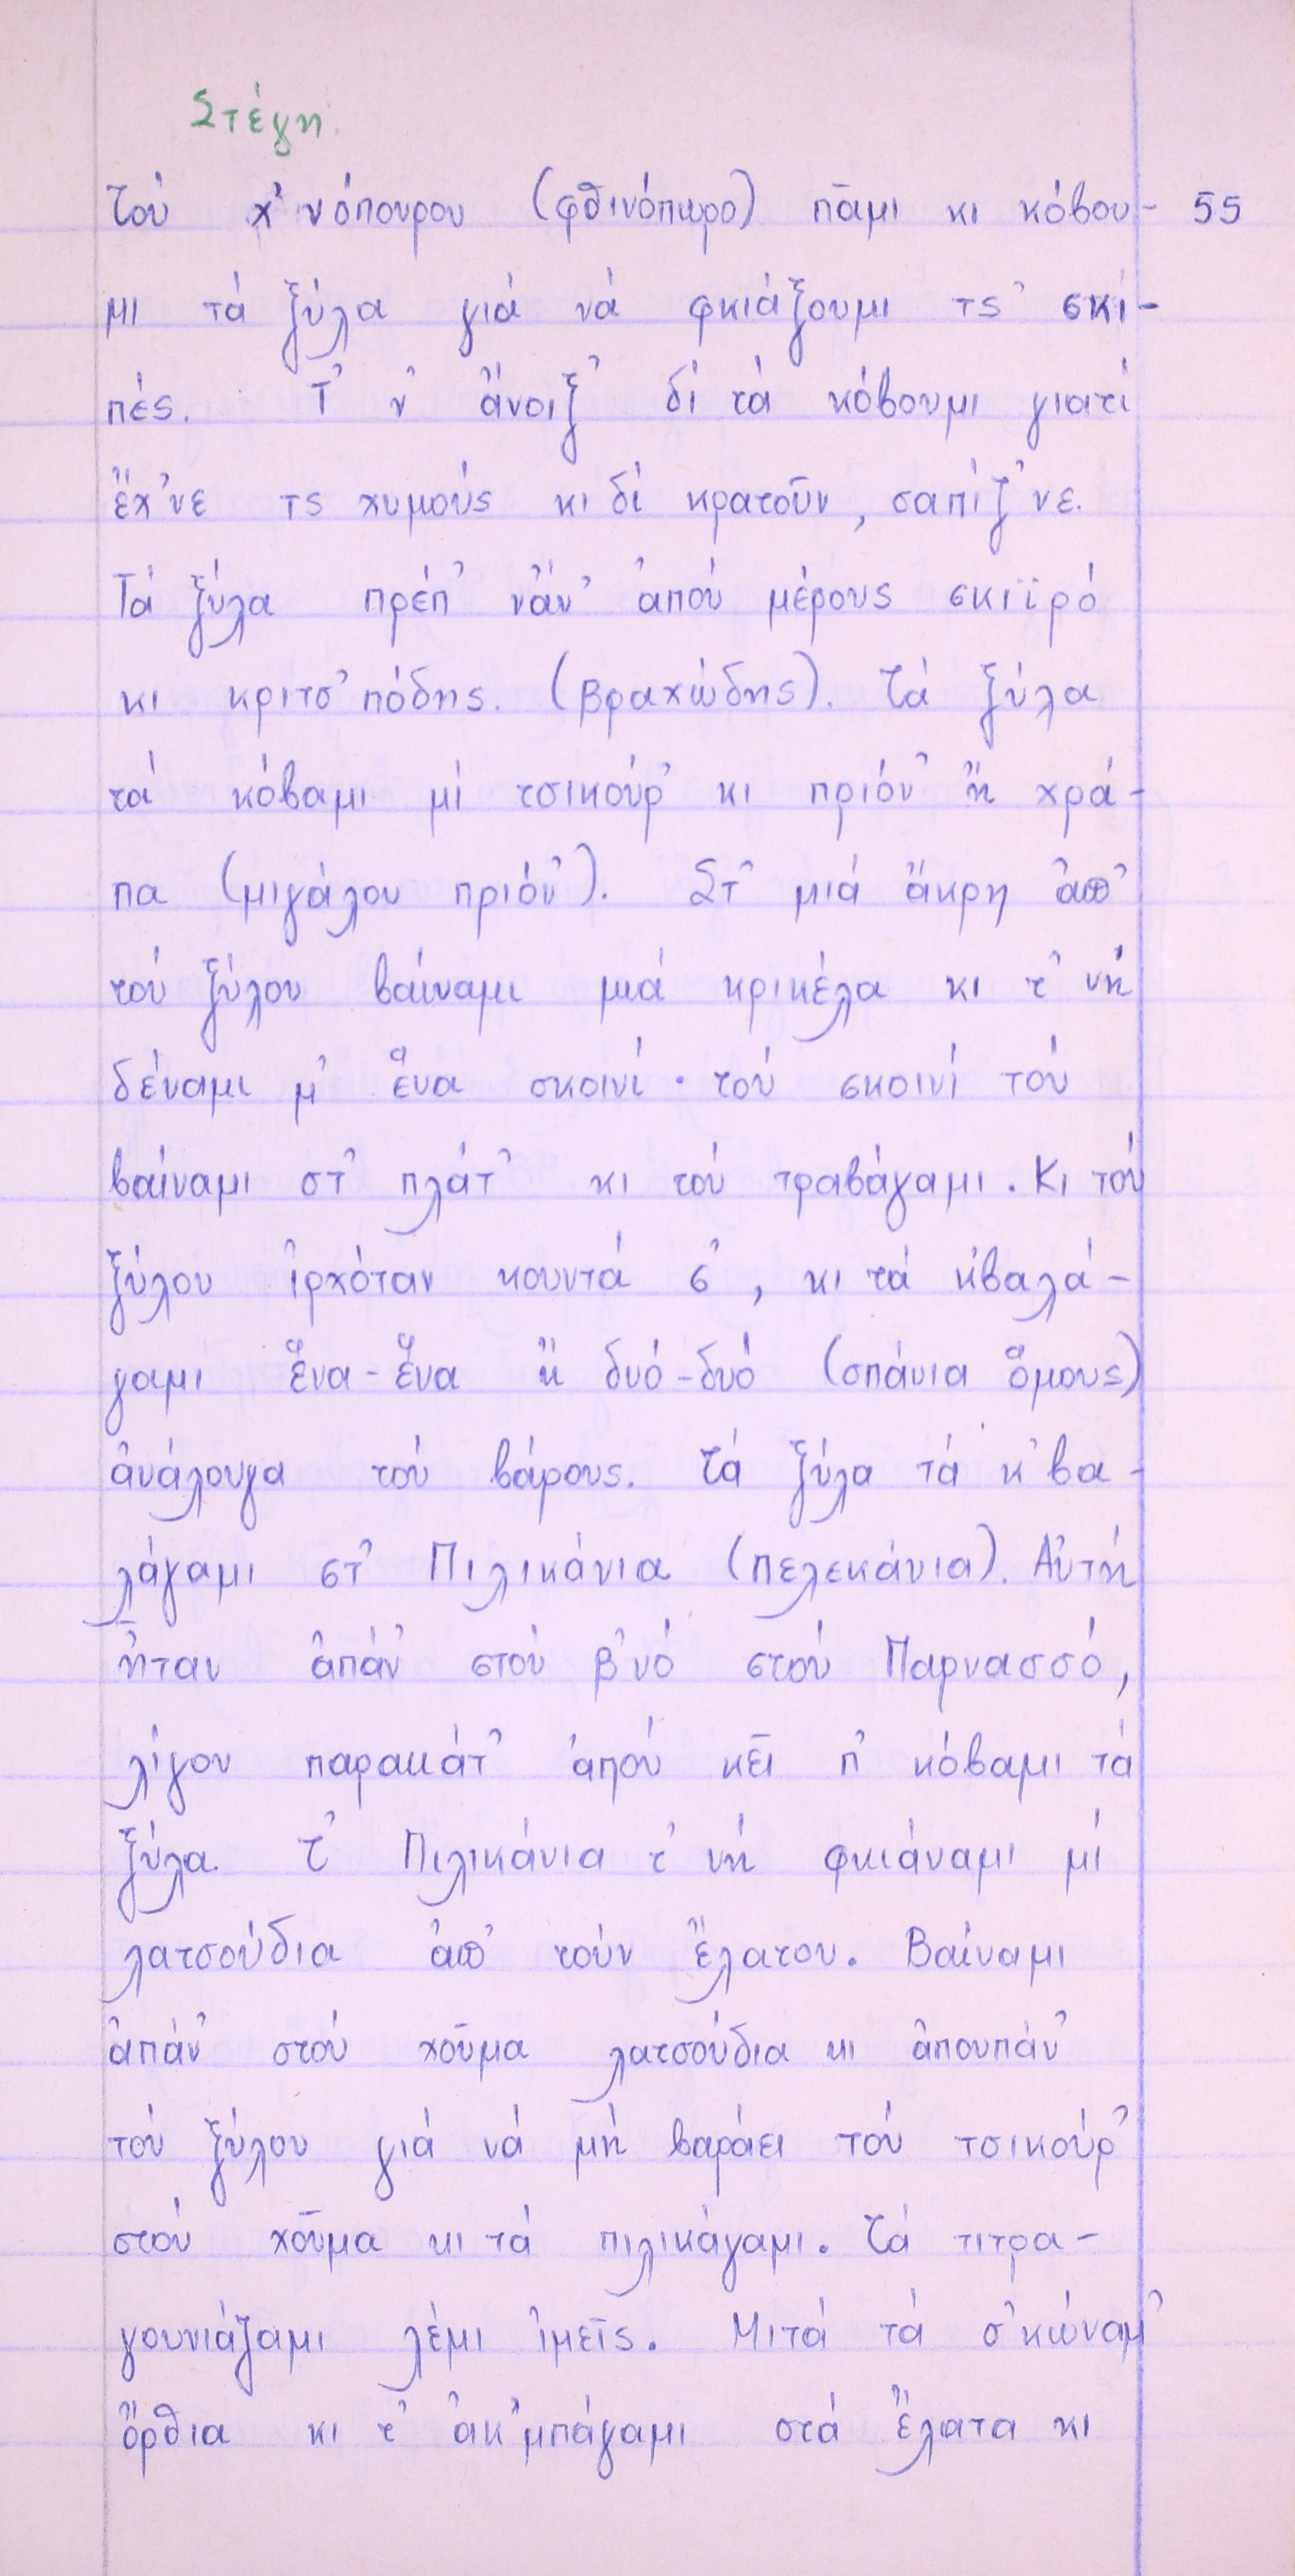 Στέγη.
Τού χ'νόπουρου (φθινόπωρο) πᾶμι κι κόβου- 55
μι τά ξύλα γιά νά φκιάξουμι τς' σκι-
πές. Τ' ν' ἄνοιξ' δέ τά κόβουμι γιατί
ἔχ'νε τς χυμούς κι δέ κρατοῦν, σαπίζ'νε.
Τά ξύλα πρέπ' νἄν' ἀπού μέρους σκιϊρό
κι κριτσ'πόδης. (βραχώδης). Τά ξύλα
τά κόβαμι μί τσικούρ' κι πριόν' ἤ χρά-
πα (μιγάλου πριόν'). Στ' μιά ἄκρη ἀπ'
τού ξύλου βαίναμι μιά κρικέλα κι τ' νή
δέναμι μ' ἕνα σκοινί· τού σκοινί τού
βαίναμι στ' πλάτ' κι τού τραβάγαμι. Κι τού
ξύλου ἰρχόταν κουντά σ', κι τά κ'βαλά-
γαμι ἕνα-ἕνα ἤ δυό-δυό (σπάνια ὅμους)
ἀνάλουγα τού βάρους. Τά ξύλα τά κ'βα-
λάγαμι στ' Πιλικάνια (πελεκάνια). Αὐτή
ἦταν ἀπάν' στού β'νό στού Παρνασσό,
λίγου παρακάτ' ἀπού κεῖ π' κόβαμι τά
ξύλα. Τ' Πιλικάνια τ' νή φκιάναμι μί
λατσούδια ἀπ' τούν ἔλατου. Βαίναμι
ἀπάν' στού χοῦμα λατσούδια κι ἀπουπάν'
τού ξύλου γιά νά μή βαράει τού τσικούρ'
στού χοῦμα κι τά πιλικάγαμι. Τά τιτρα-
γουνιάζαμι λέμι ἰμεῖς. Μιτά τά σ'κώναμ'
ὄρθια κι τ' ἀκ'μπάγαμι στά ἔλατα κι